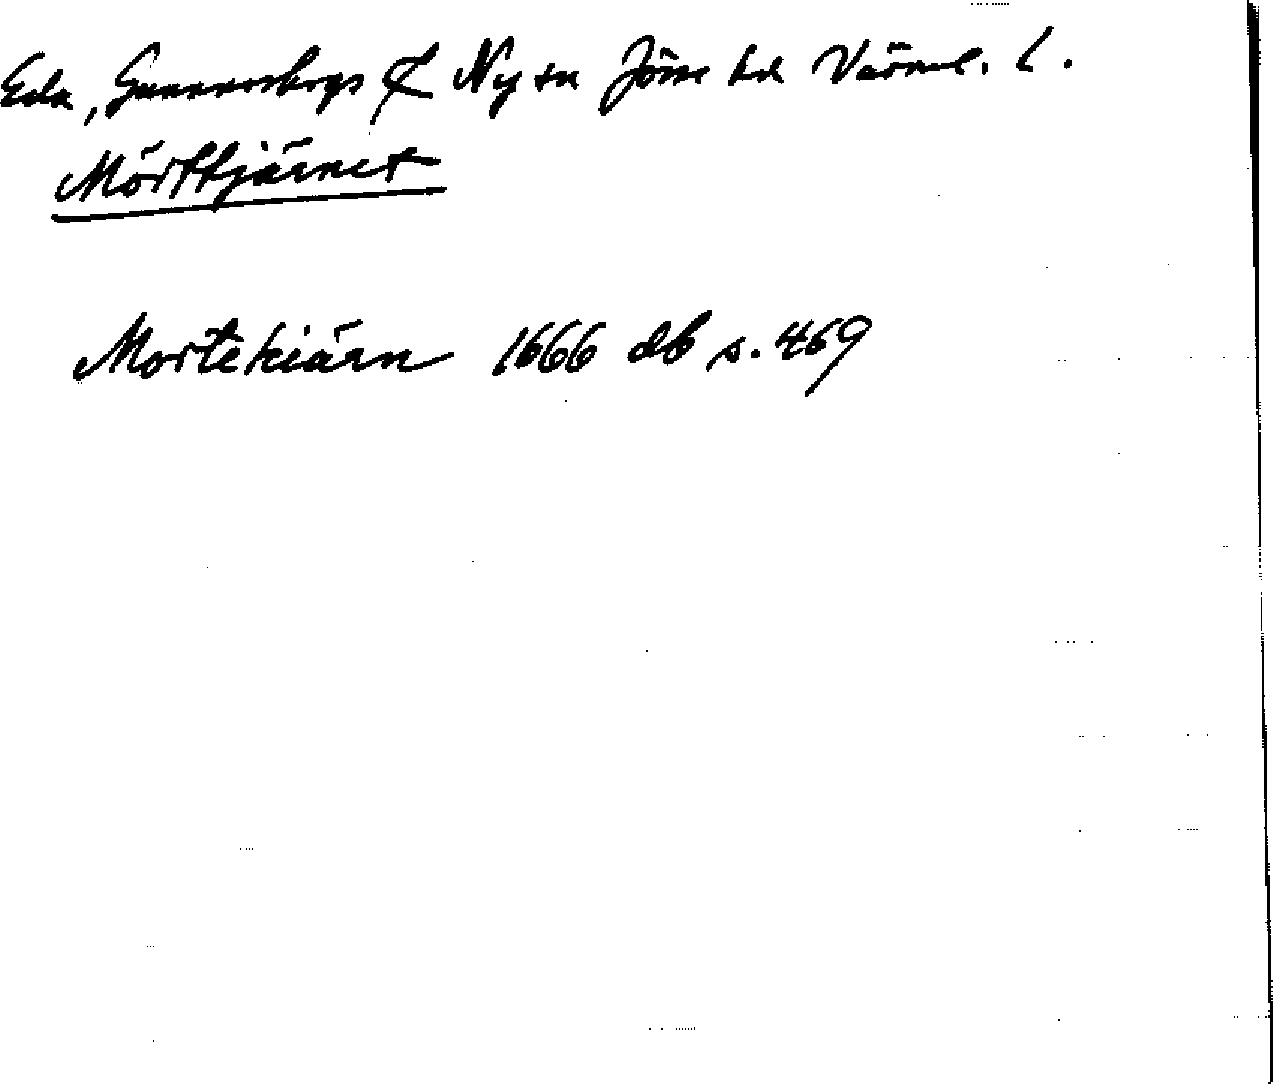 Eda, Gunnarskogs & Ny sn Jösse hd Värml. l.
Mörttjärnet
Mortekiärn 1666 db s. 469